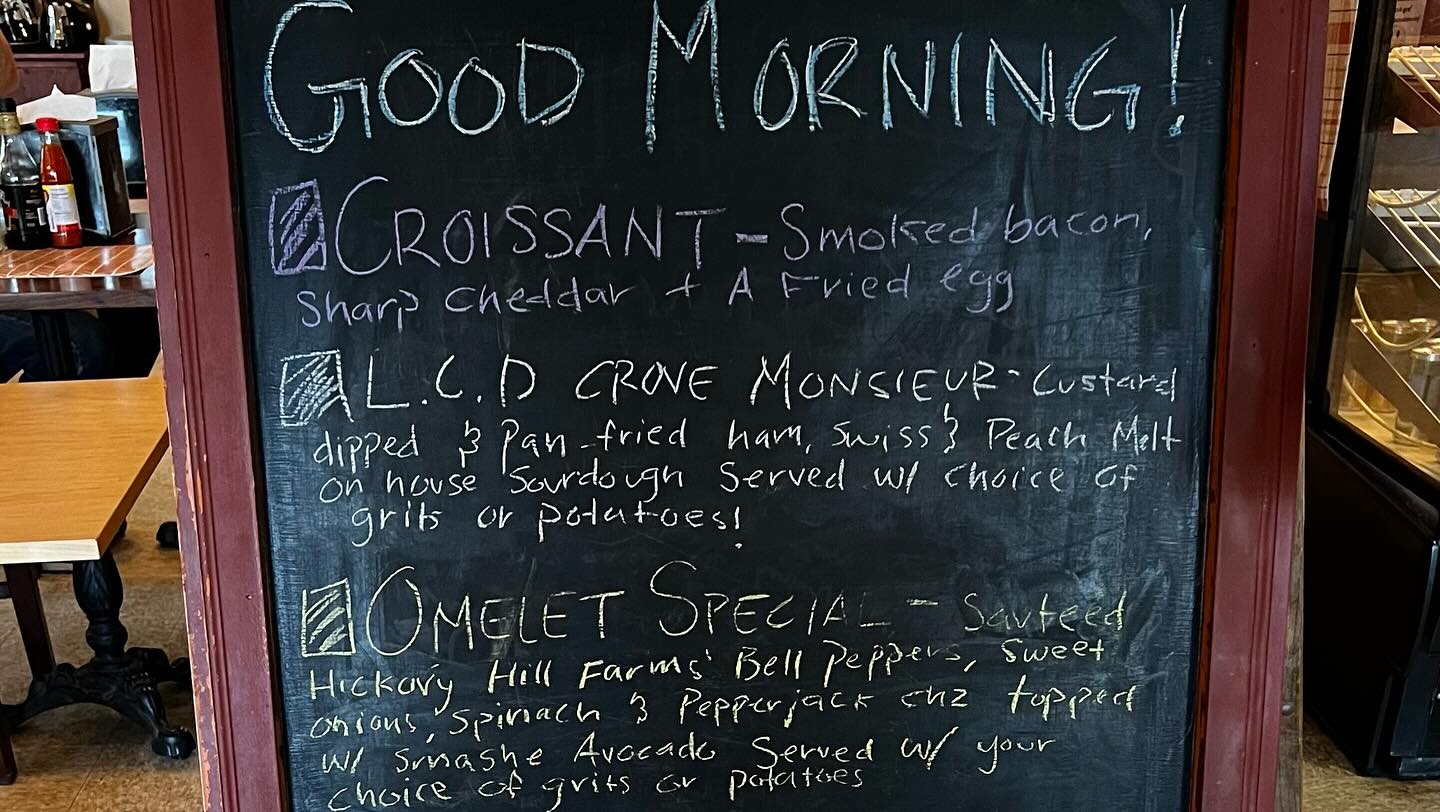 GOOD MORNING!
CROISSANT - Smoked bacon,
Sharp cheddar + A Fried egg
L.C.D CROVE MONSIEUR - Custard
dipped & Pan-fried ham, Swiss & Peach Melt
on house Sourdough Served w/ choice of
grits or potatoes!
OMELET SPECIAL - Sauteed
Hickory Hill Farms' Bell Peppers, Sweet
onions, spinach & Pepperjack chz topped
w/ Smashe Avocado Served w/ your
choice of grits or potatoes